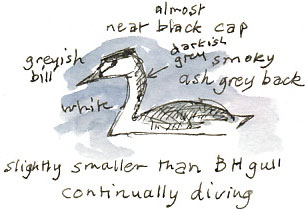 almost
near black cap
darkish
grey
greyish
bill
smoky
ash grey back
white
slightly smaller than BH gull
continually diving